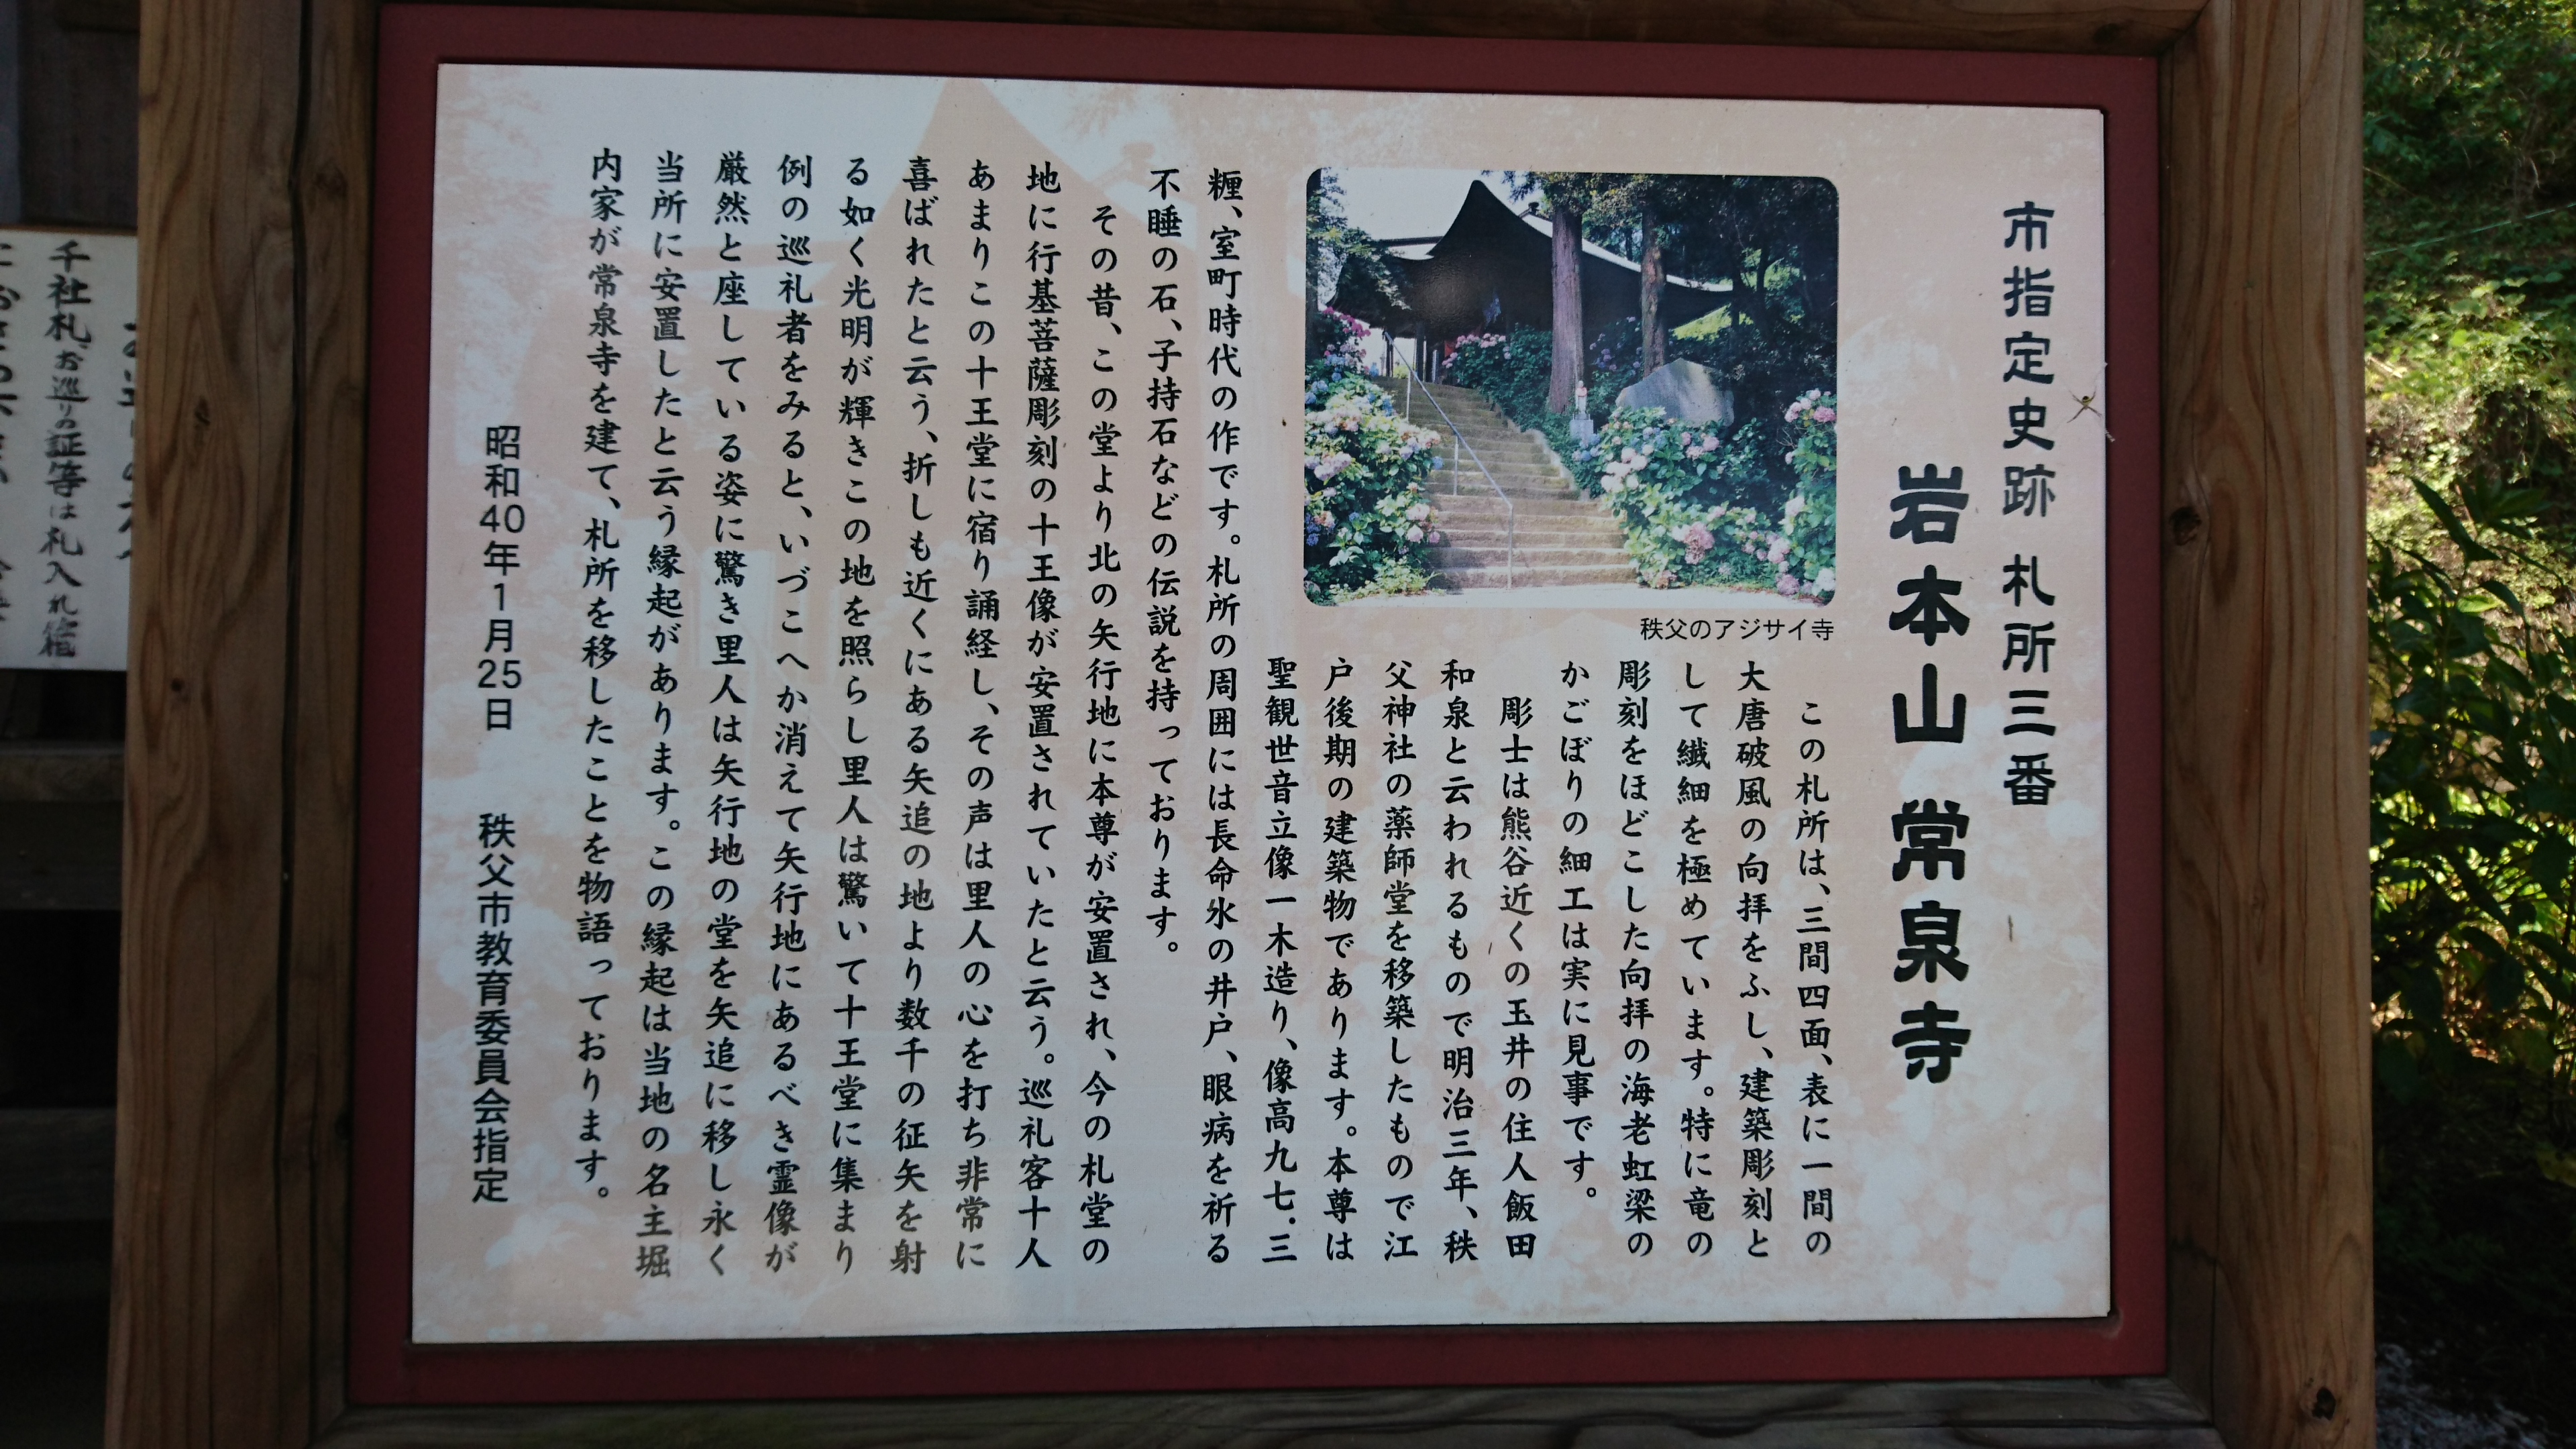 市指定史跡 札所三番
岩本山 常泉寺
秩父のアジサイ寺
この札所は、三間四面、表に一間の
大唐破風の向拝をふし、建築彫刻と
して繊細を極めています。特に竜の
彫刻をほどこした向拝の海老虹梁の
かごぼりの細工は実に見事です。
彫士は熊谷近くの玉井の住人飯田
和泉と云われるもので明治三年、秩
父神社の薬師堂を移築したもので江
戸後期の建築物であります。本尊は
聖観世音立像一木造り、像高九七.三
糎、室町時代の作です。札所の周囲には長命水の井戸、眼病を祈る
不睡の石、子持石などの伝説を持っております。
その昔、この堂より北の矢行地に本尊が安置され、今の札堂の
地に行基菩薩彫刻の十王像が安置されていたと云う。巡礼客十人
あまりこの十王堂に宿り誦経し、その声は里人の心を打ち非常に
喜ばれたと云う、折しも近くにある矢追の地より数千の征矢を射
る如く光明が輝きこの地を照らし里人は驚いて十王堂に集まり
例の巡礼者をみると、いづこへか消えて矢行地にあるべき霊像が
厳然と座している姿に驚き里人は矢行地の堂を矢追に移し永く
当所に安置したと云う縁起があります。この縁起は当地の名主堀
内家が常泉寺を建て、札所を移したことを物語っております。
昭和40年1月25日 秩父市教育委員会指定
千社札、お巡りの証等は札入れ箱